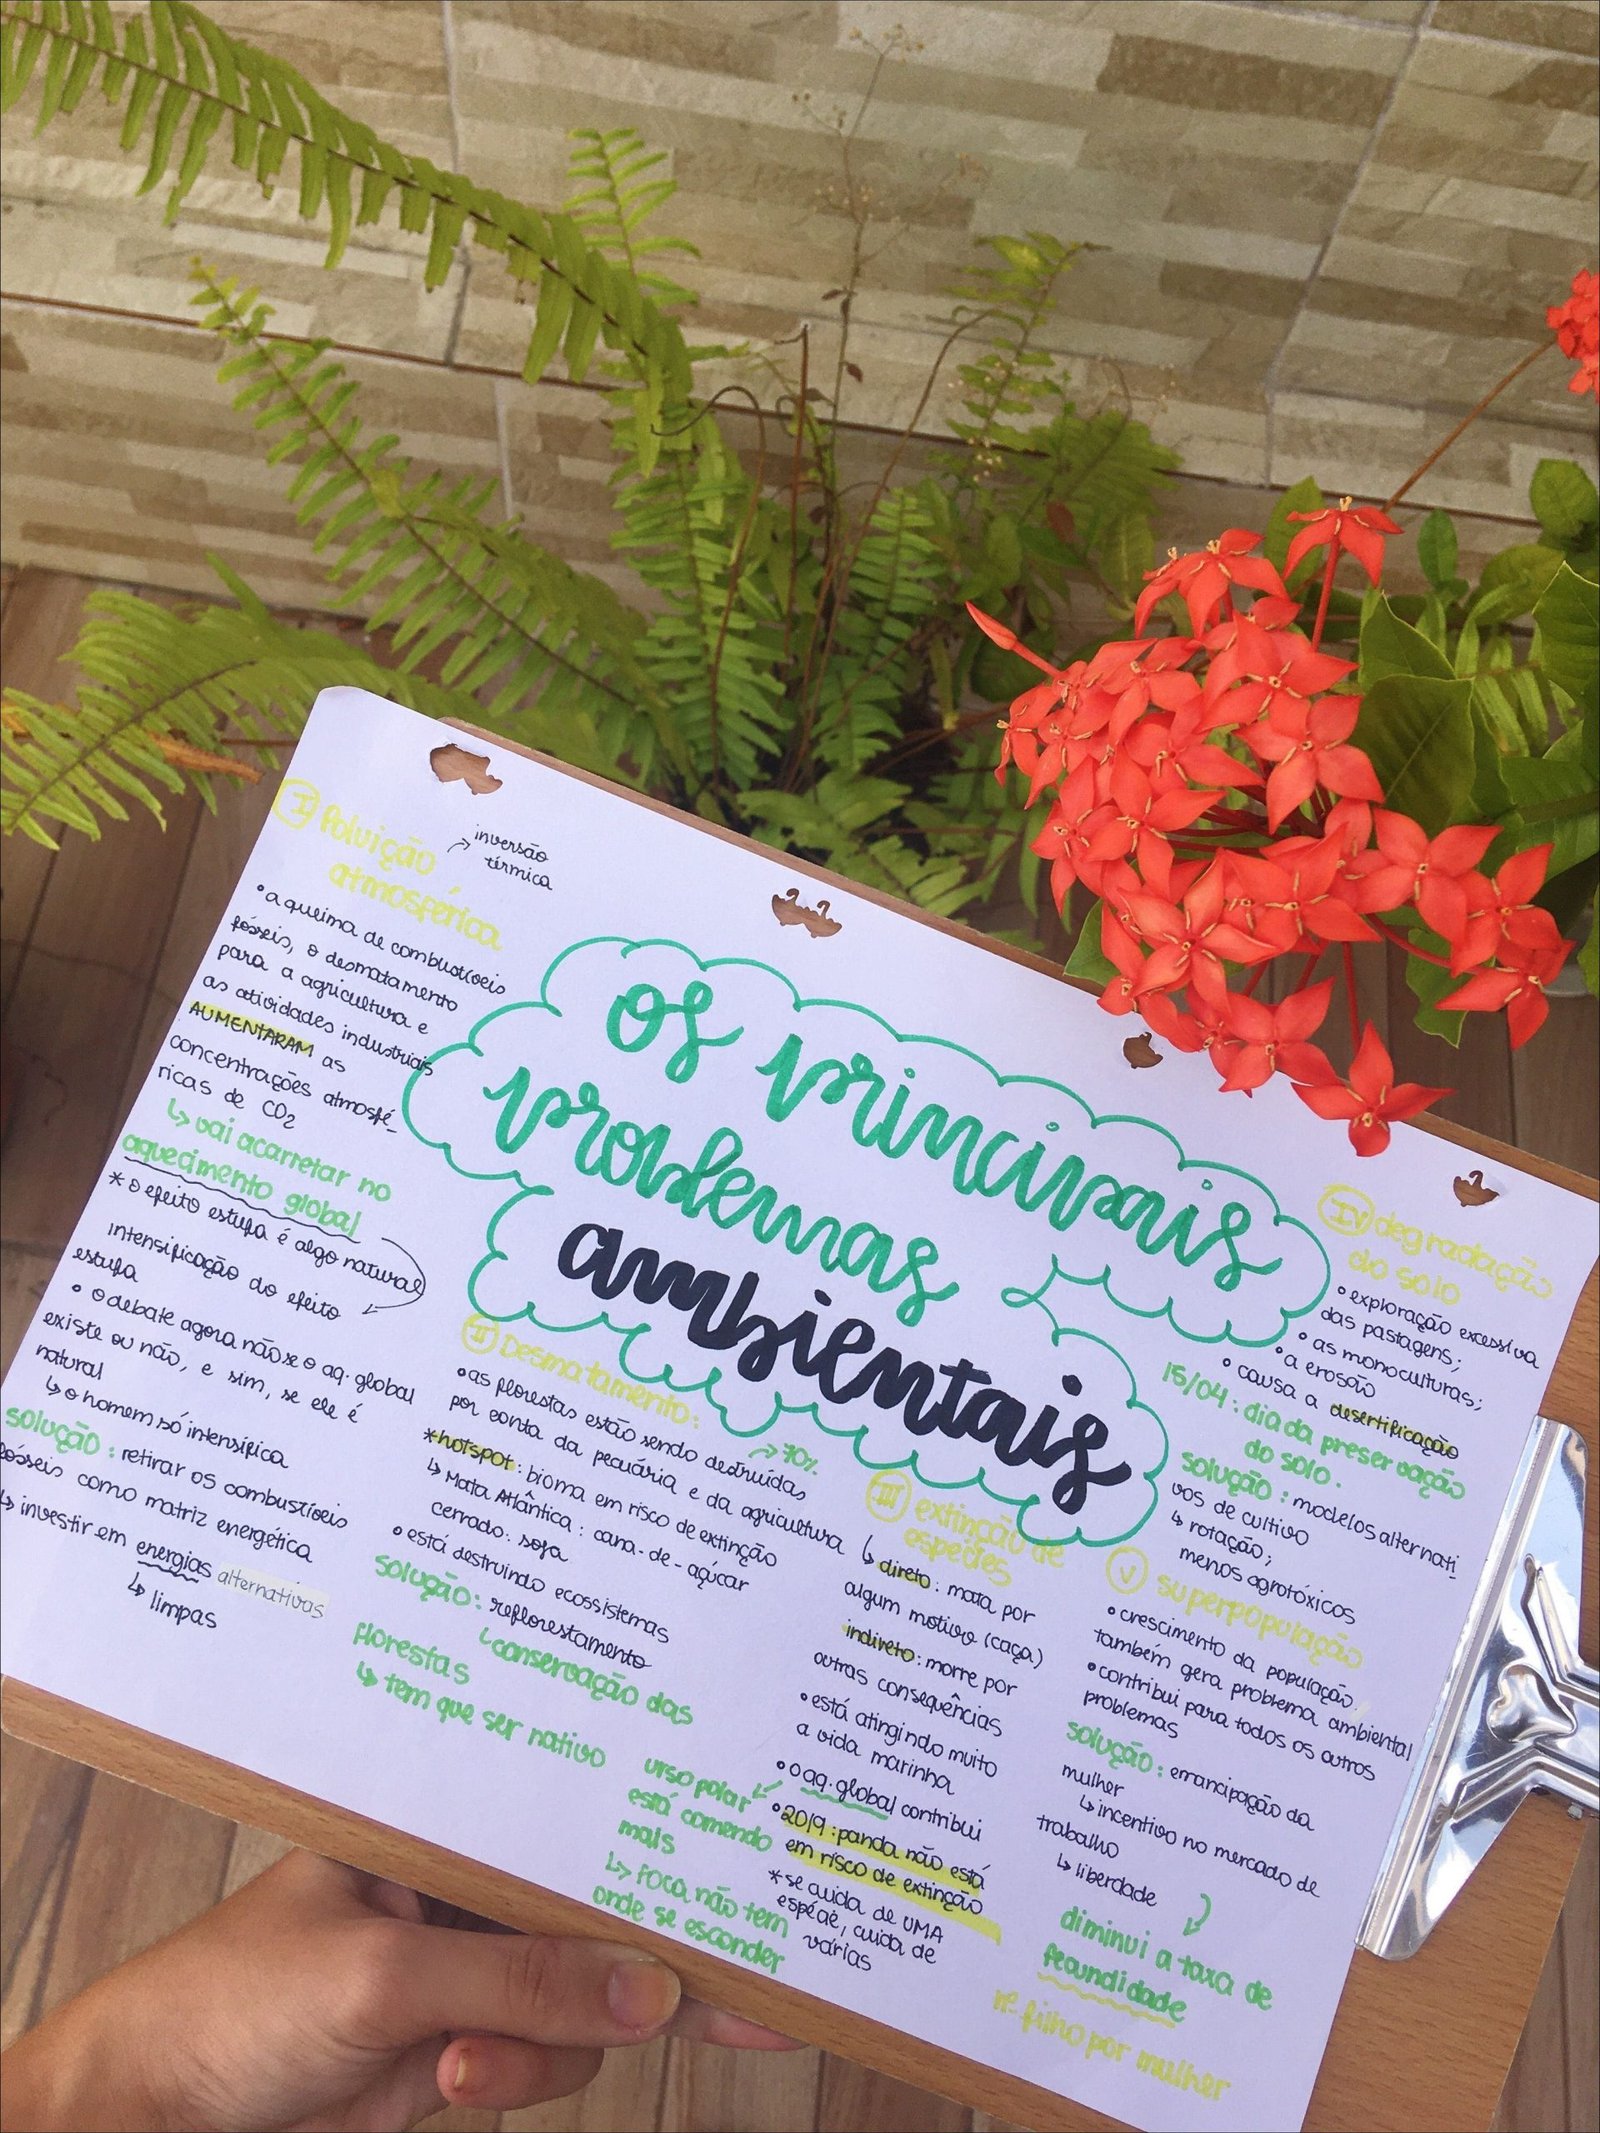 os principais
problemas
ambientais
I Poluição
atmosférica
inversão
térmica
° a queima de combustíveis
fósseis, o desmatamento
para a agricultura e
as atividades industriais
AUMENTARAM as
concentrações atmosfé-
ricas de CO2
↳ vai acarretar no
aquecimento global
* o efeito estufa é algo natural
intensificação do efeito
estufa
° o debate agora não se o aq. global
existe ou não, e sim, se ele é
natural
↳ o homem só intensifica
solução: retirar os combustíveis
fósseis como matriz energética
↳ investir em energias alternativas
↳ limpas
II Desmatamento:
° as florestas estão sendo destruídas
por conta da pecuária e da agricultura
→ 70%
* hotspot: bioma em risco de extinção
↳ Mata Atlântica: cana-de-açúcar
cerrado: soja
° está destruindo ecossistemas
solução: reflorestamento
↳ conservação das
florestas
↳ tem que ser nativo
III extinção de
espécies
↳ direto: mata por
algum motivo (caça)
indireto: morre por
outras consequências
° está atingindo muito
a vida marinha
° o aq. global contribui
urso polar
está comendo
mais
↳ foca não tem
onde se esconder
° 2019: panda não está
em risco de extinção
* se cuida de UMA
espécie, cuida de
várias
IV degradação
do solo
° exploração excessiva
das pastagens;
° as monoculturas;
° a erosão
° causa a desertificação
15/04: dia da preservação
do solo.
solução: modelos alternati-
vos de cultivo
↳ rotação;
menos agrotóxicos
V superpopulação
° crescimento da população
também gera problema ambiental
° contribui para todos os outros
problemas
solução: emancipação da
mulher
↳ incentivo no mercado de
trabalho
↳ liberdade
diminui a taxa de
fecundidade
nº filho por mulher